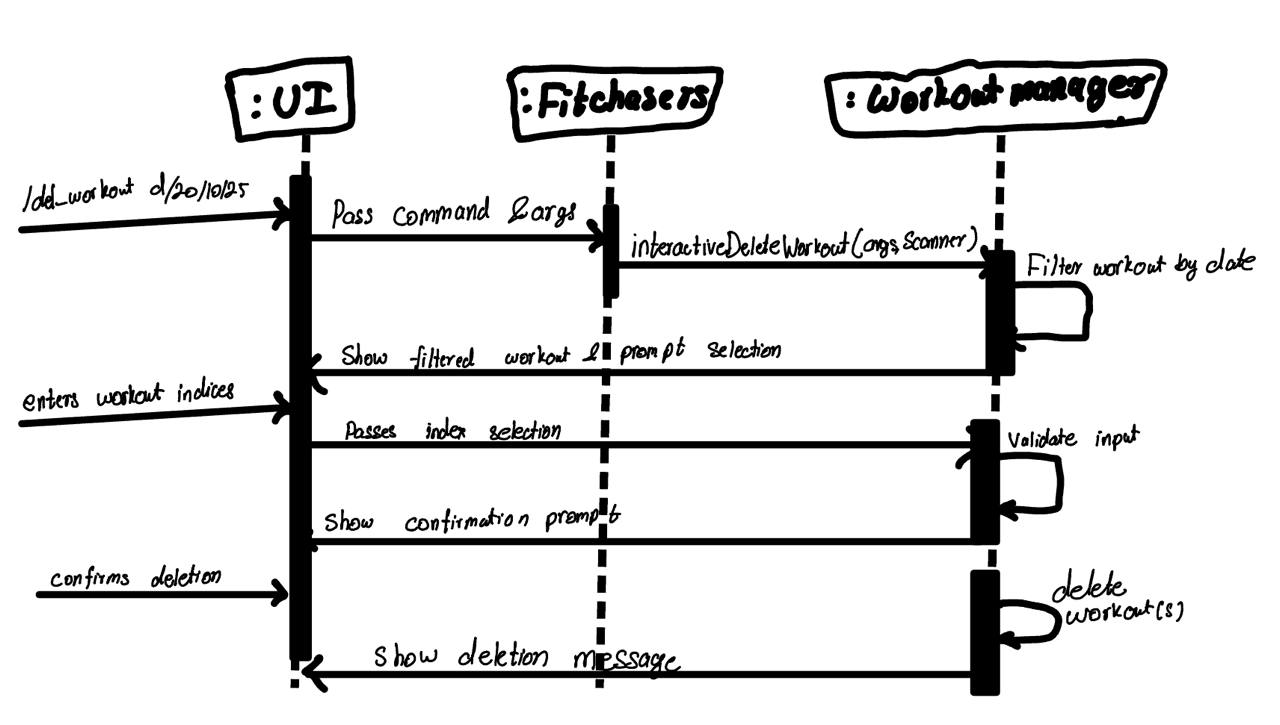 : UI
: Fitchasers
: Workout manager
/del_workout d/20/10/25
Pass command & args
interactiveDeleteWorkout(args, Scanner)
Filter workout by date
Show filtered workout & prompt selection
enters workout indices
Passes index selection
Validate input
Show confirmation prompt
confirms deletion
delete
workout(s)
Show deletion message